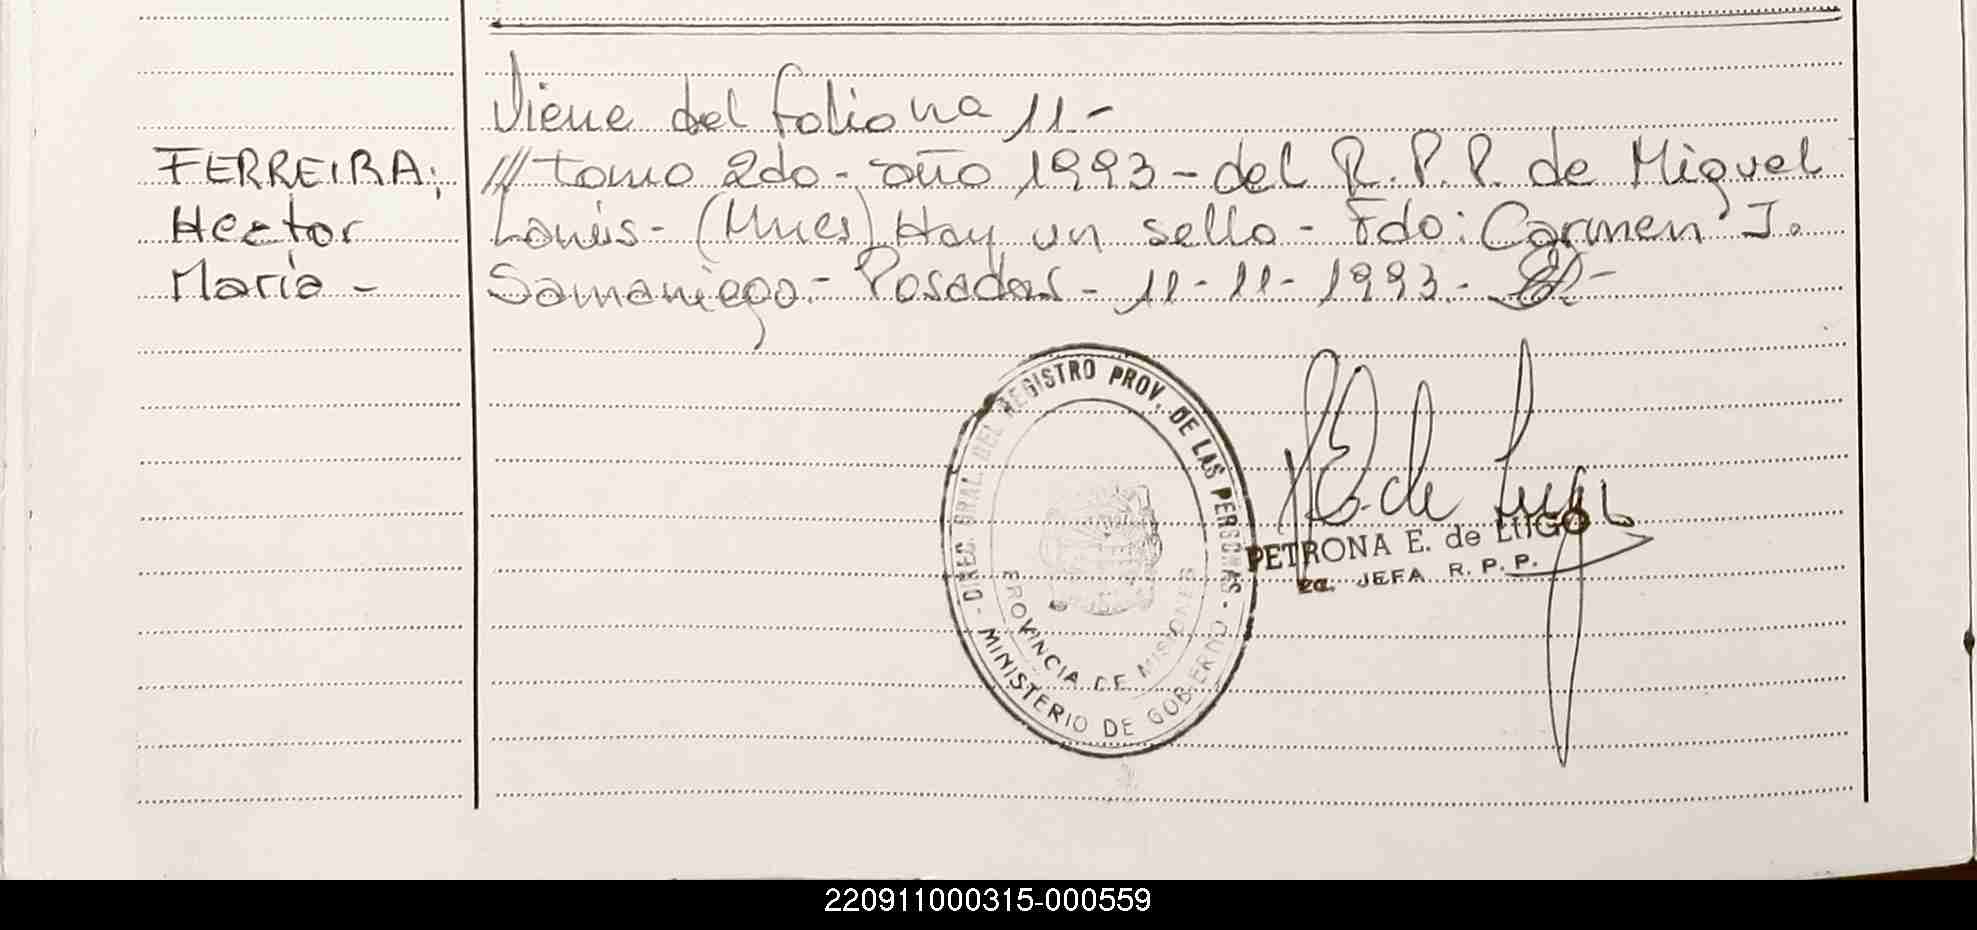 Viene del folio na 11-
FERREIRA; /// tomo 2do.- año 1993- del R.P.P. de Miguel
Hector Lanús- (Mnes) Hay un sello- Fdo: Carmen J.
Maria - Samaniego.- Posadas - 11-11-1993.-
DIREC. GRAL. DEL REGISTRO PROV. DE LAS PERSONAS
PROVINCIA DE MISIONES
- MINISTERIO DE GOBIERNO -
P E. de Lugo
PETRONA E. de LUGO
2a. JEFA R. P. P.
220911000315-000559